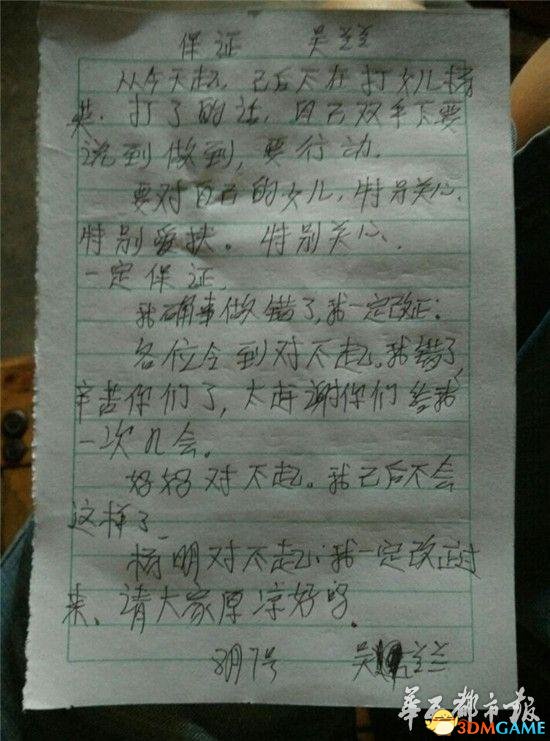 保证 吴兰兰
从今天起，己后不在打女儿杨
打了的话，自己双手下要
说到做到，要行动.
要对自己的女儿，特别关心.
特别爱扶。特别关心.
一定保证.
我确事做错了,我一定改正:
各位令到对不起,我错了,
辛苦你们了,太再谢你们给我
一次几会。
好好对不起。我己后不会
这样了.
杨明对不起:我一定改正过
来、请大家原凉好吗.
8月7号 吴兰兰
华西都市报
3DMGAME